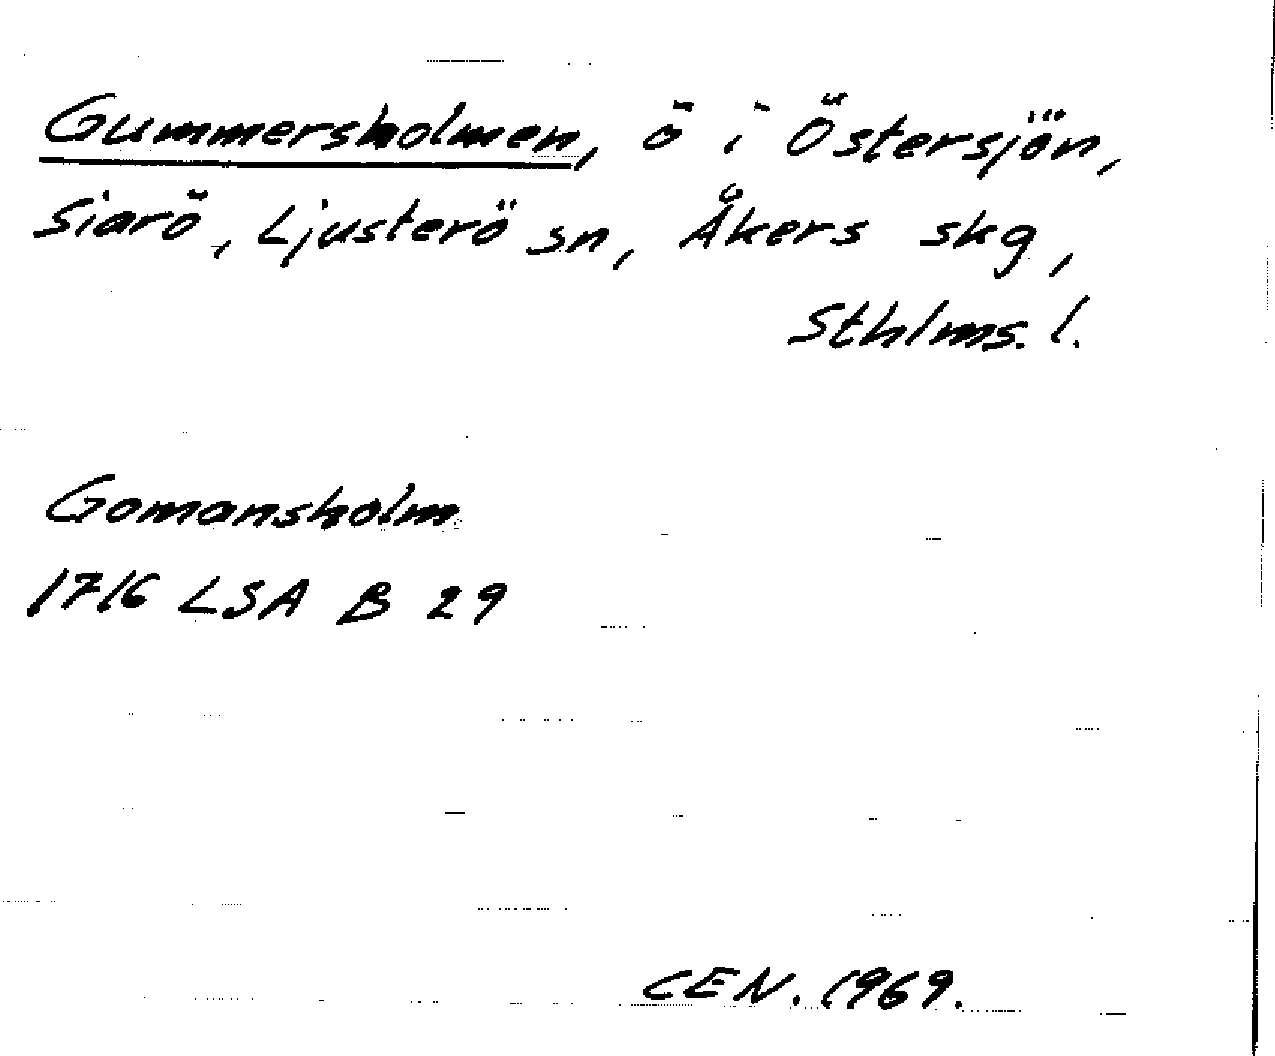 Gummersholmen, ö i Östersjön,
Siarö, Ljusterö sn, Åkers skg,
Sthlms. l.
Gomansholm
1716 LSA B 29
CEN. 1969.